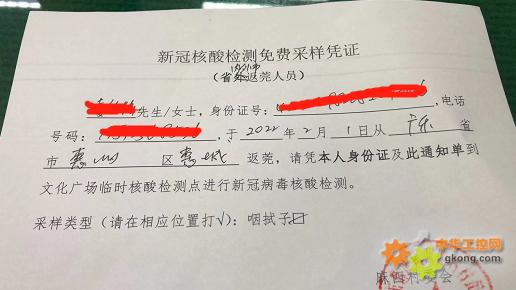 新冠核酸检测免费采样凭证
（省内外市返莞人员）
先生/女士，身份证号：，电话
号码：，于2022年2月1日从广东省
市惠州区惠城返莞，请凭本人身份证及此通知单到
文化广场临时核酸检测点进行新冠病毒核酸检测。
采样类型（请在相应位置打√）：咽拭子☑
中华工控网
gkong.com